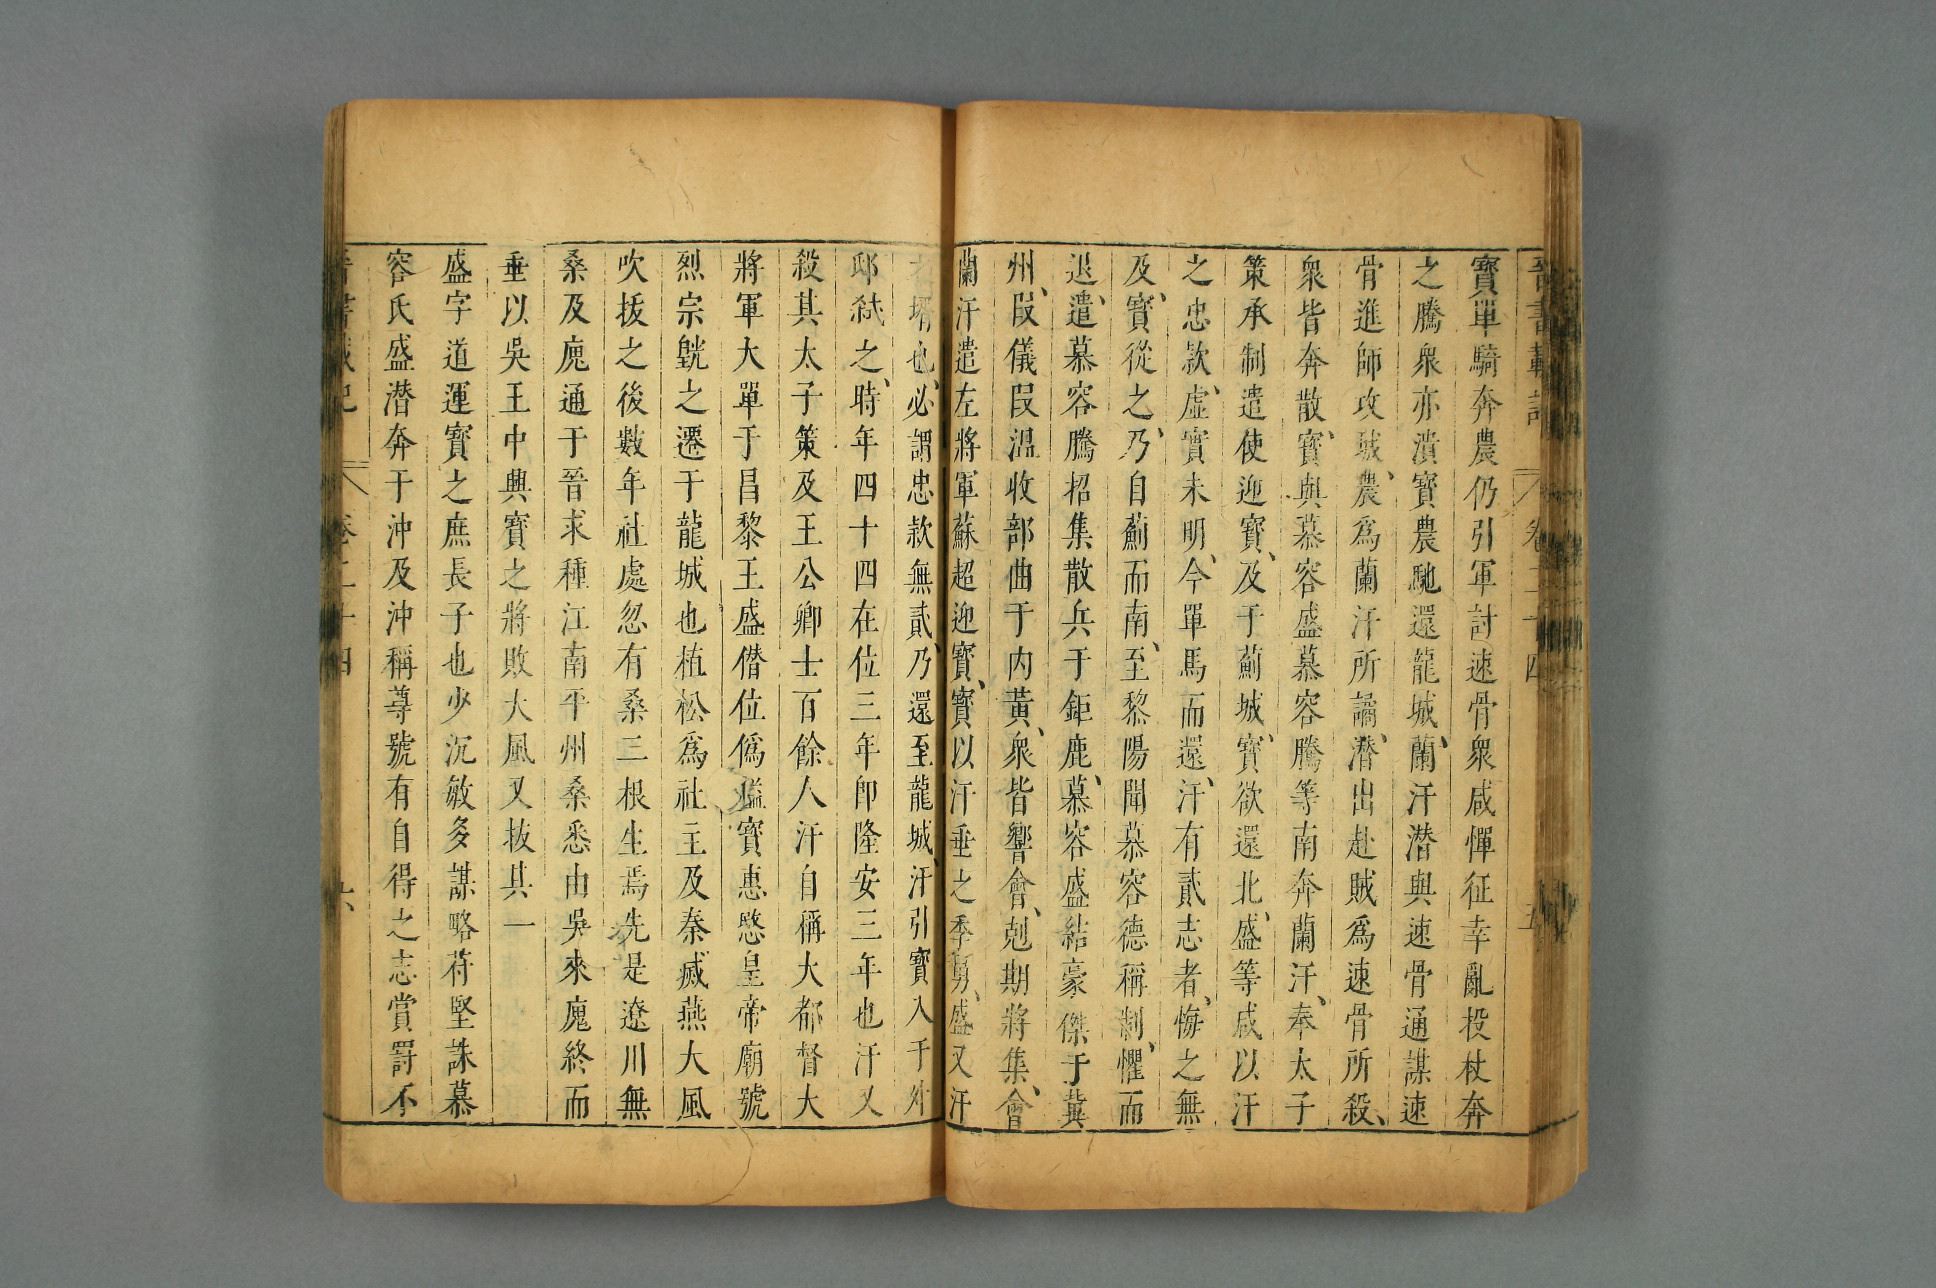 晉書載記 卷二十四 五
寶單騎奔農仍引軍討速骨衆咸憚征幸亂投杖奔
之騰衆亦潰寶農馳還龍城蘭汗潛與速骨通謀速
骨進師攻城農爲蘭汗所譎潛出赴賊爲速骨所殺
衆皆奔散寶與慕容盛慕容騰等南奔蘭汗奉太子
策承制遣使迎寶及于薊城寶欲還北盛等咸以汗
之忠款虛實未明今單馬而還汗有貳志者悔之無
及寶從之乃自薊而南至黎陽聞慕容德稱制懼而
退遣慕容騰招集散兵于鉅鹿慕容盛結豪傑于冀
州段儀段温收部曲于内黃衆皆響會剋期將集會
蘭汗遣左將軍蘇超迎寶寶以汗垂之季舅盛又汗
壻也必謂忠款無貳乃還至龍城汗引寶入于外
邸弒之時年四十四在位三年即隆安三年也汗又
殺其太子策及王公卿士百餘人汗自稱大都督大
將軍大單于昌黎王盛僭位僞諡寶惠愍皇帝廟號
烈宗皝之遷于龍城也植松爲社主及秦滅燕大風
吹拔之後數年社處忽有桑二根生焉先是遼川無
桑及廆通于晉求種江南平州桑悉由吳來廆終而
垂以吳王中興寶之將敗大風又拔其一
盛字道運寶之庶長子也少沉敏多謀略苻堅誅慕
容氏盛潛奔于沖及沖稱尊號有自得之志賞罰不
晉書載記 卷二十四 六